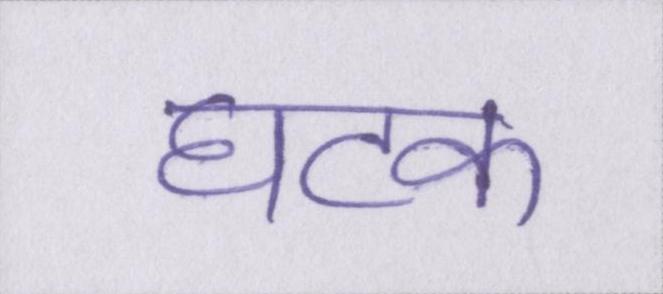 घटक